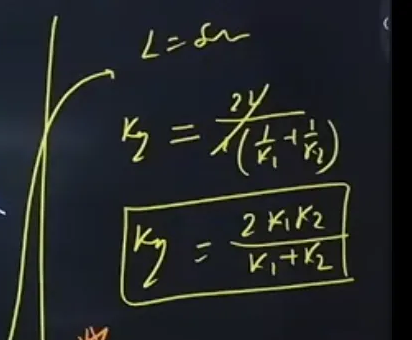 L = Sm
K_y = 2L / L(1/K₁ + 1/K₂)
K_y = 2 K₁ K₂ / K₁ + K₂